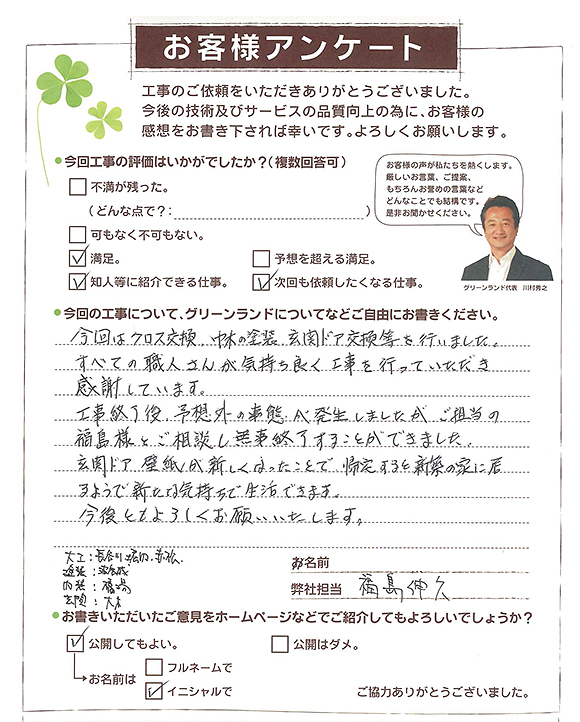 お客様アンケート
工事のご依頼をいただきありがとうございました。
今後の技術及びサービスの品質向上の為に、お客様の
感想をお書き下されば幸いです。よろしくお願いします。
●今回工事の評価はいかがでしたか?(複数回答可)
お客様の声が私たちを熱くします。
厳しいお言葉、ご提案、
もちろんお誉めの言葉など
どんなことでも結構です。
是非お聞かせください。
グリーンランド代表 川村秀之
□不満が残った。
(どんな点で?: )
□可もなく不可もない。
☑満足。 □予想を超える満足。
☑知人等に紹介できる仕事。 ☑次回も依頼したくなる仕事。
●今回の工事について、グリーンランドについてなどご自由にお書きください。
今回はクロス交換、中木の塗装、玄関ドア交換等を行いました。
すべての職人さんが気持ち良く工事を行っていただき
感謝しています。
工事終了後、予想外の事態が発生しましたが、ご担当の
福島様とご相談し無事終了することができました。
玄関ドア、壁紙が新しくなったことで、帰宅すると新築の家に居
るようで新たな気持ちで生活できます。
今後ともよろしくお願いいたします。
大工:長谷川
塗装:
内装:福島
玄関:大倉
お名前
弊社担当 福島伸久
●お書きいただいたご意見をホームページなどでご紹介してもよろしいでしょうか?
☑公開してもよい。 □公開はダメ。
お名前は □フルネームで
☑イニシャルで
ご協力ありがとうございました。